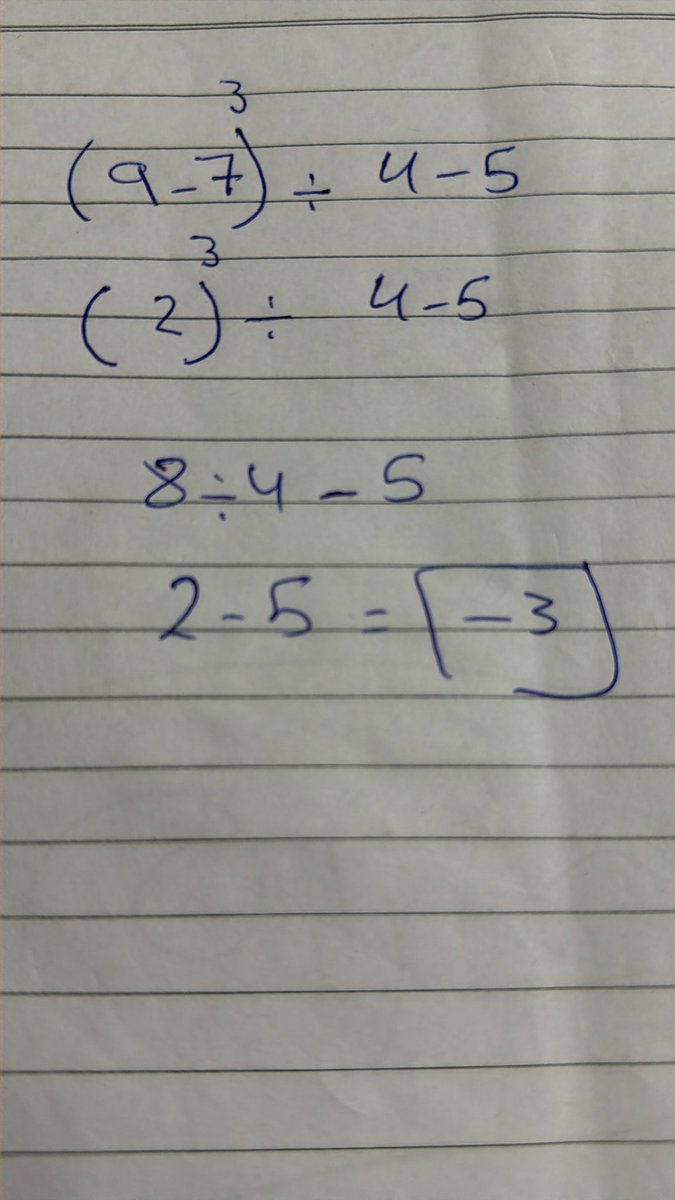 (9-7)³ ÷ 4-5
(2)³ ÷ 4-5
8÷4 - 5
2-5 = -3